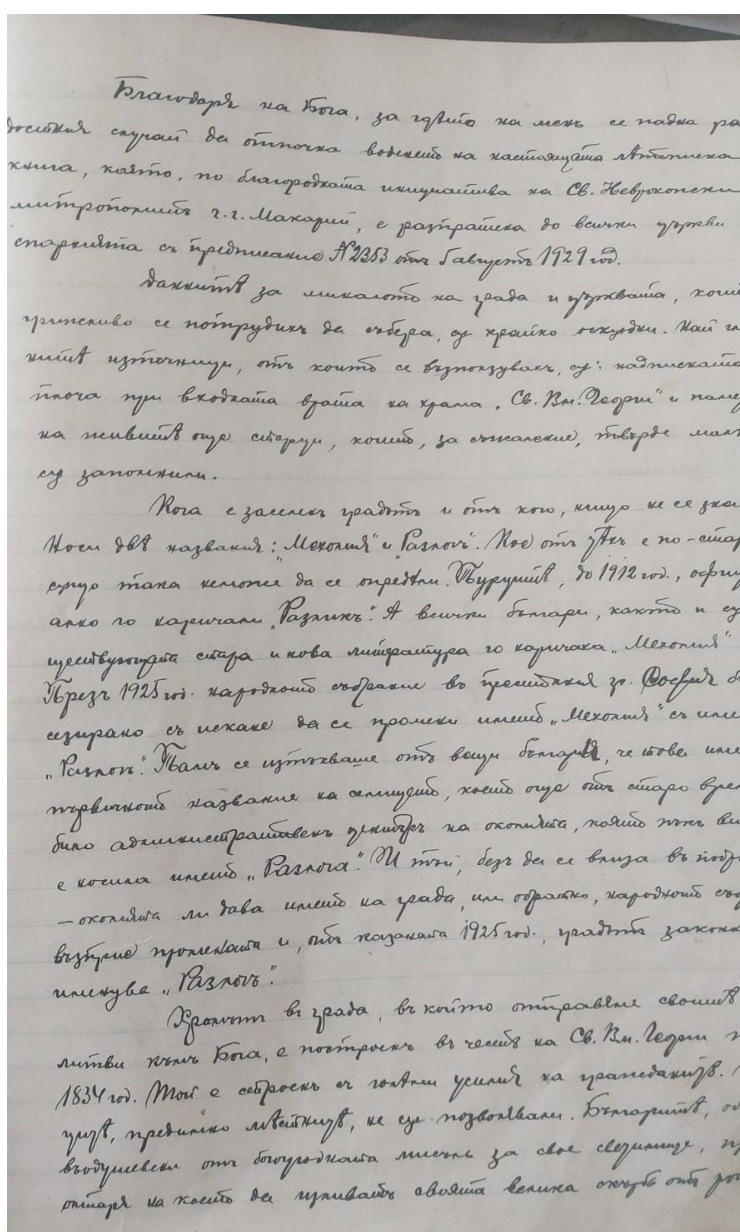 Благодаря на Бога, за гдѣто на менъ се падна ра
достния случай да отпочна воденето на настоящата лѣтописна
книга, която, по благородната инициатива на Св. Неврокопски
митрополитъ г. г. Макарий, е разпратена до всички църкви
епархията съ предписание №2353 отъ 6 августъ 1929 год.
Даннитѣ за миналото на града и църквата, коит
грижливо се потрудихъ да събера, сѫ крайно оскѫдни. Най гл
нитѣ източници, отъ които се възползувахъ, сѫ: надписната
плоча при входната врата на храма „Св. Вм. Георги" и паме
на живитѣ още старци, които, за съжаление, твърде малк
сѫ запомнили.
Кога е заселенъ градътъ и отъ кого, нищо не се знае
Носи двѣ названия: „Мехомия" и „Разлогъ". Кое отъ тѣхъ е по-стар
също така неможе да се опредѣли. Турцитѣ, до 1912 год., офиц
ално го наричали „Разликъ". А всички българи, както и съ
ществующата стара и нова литература го наричаха „Мехомия"
Презъ 1925 год. народното събрание въ престолния гр. София б
сезирано съ искане да се промени името „Мехомия" съ име
„Разлогъ". Тамъ се изтъкваше отъ вещи българи, че това име
първичното название на селището, което още отъ старо врем
било административенъ центъръ на околията, която пъкъ ви
е носила името „Разлога". И тъй, безъ да се влиза въ подр
– околията ли дава името на града, или обратно, народното съб
възприе промената и, отъ казаната 1925 год., градътъ законн
именува „Разлогъ".
Храмътъ въ града, въ който отправяме своитѣ
литви къмъ Бога, е построенъ въ честь на Св. Вм. Георги п
1834 год. Той е строенъ съ голѣми усилия на гражданитѣ.
цитѣ, предимно мѣстнитѣ, не сѫ позволявали. Българитѣ, об
въодушевени отъ богоугодната мисъль за свое светилище, пр
олтаря на което да изливатъ своята велика скръбь отъ ро